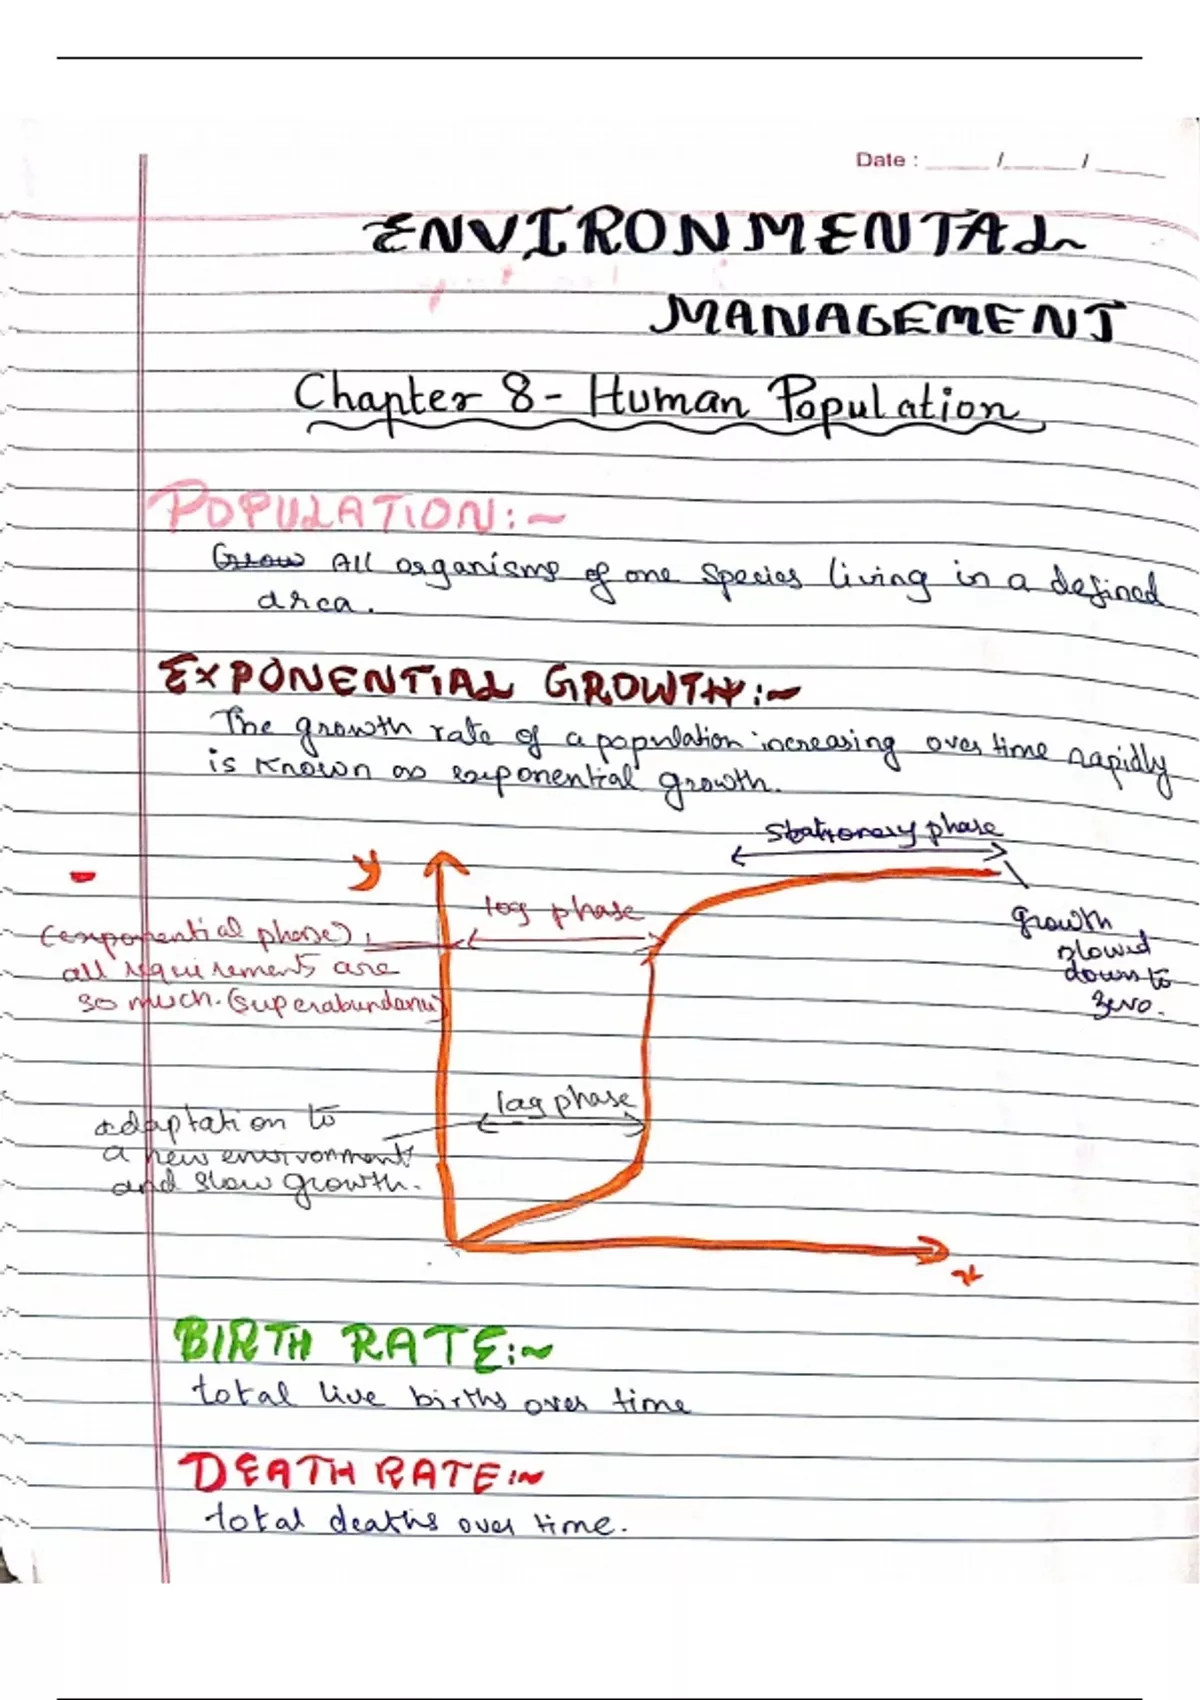 Date : ____ / ____ / ____
ENVIRONMENTAL
MANAGEMENT
Chapter 8 - Human Population
POPULATION:~
Grow All organisms of one species living in a defined
area.
EXPONENTIAL GROWTH:~
The growth rate of a population increasing over time rapidly
is known as exponential growth.
stationary phase
y
log phase
(exponential phase)
all requirements are
so much. (superabundanu)
growth
slowed
down to
zero.
lag phase
adaptation to
a new environment
and slow growth.
x
BIRTH RATE:~
total live births over time
DEATH RATE:~
total deaths over time.